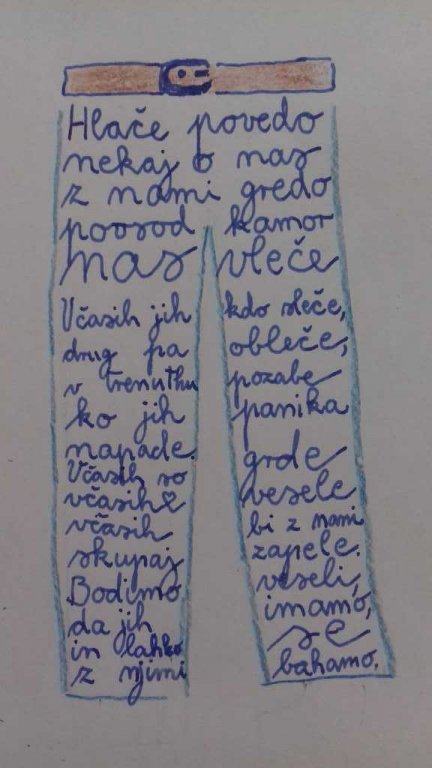 Hlače povedo
nekaj o nas
z nami gredo
povsod kamor
nas vleče
Včasih jih kdo sleče,
drug pa obleče,
v trenutku pozabe
ko jih panika
napade.
Včasih so grde
včasih vesele
včasih bi z nami
skupaj zapele.
Bodimo veseli,
da jih imamo,
in lahko se
z njimi bahamo.